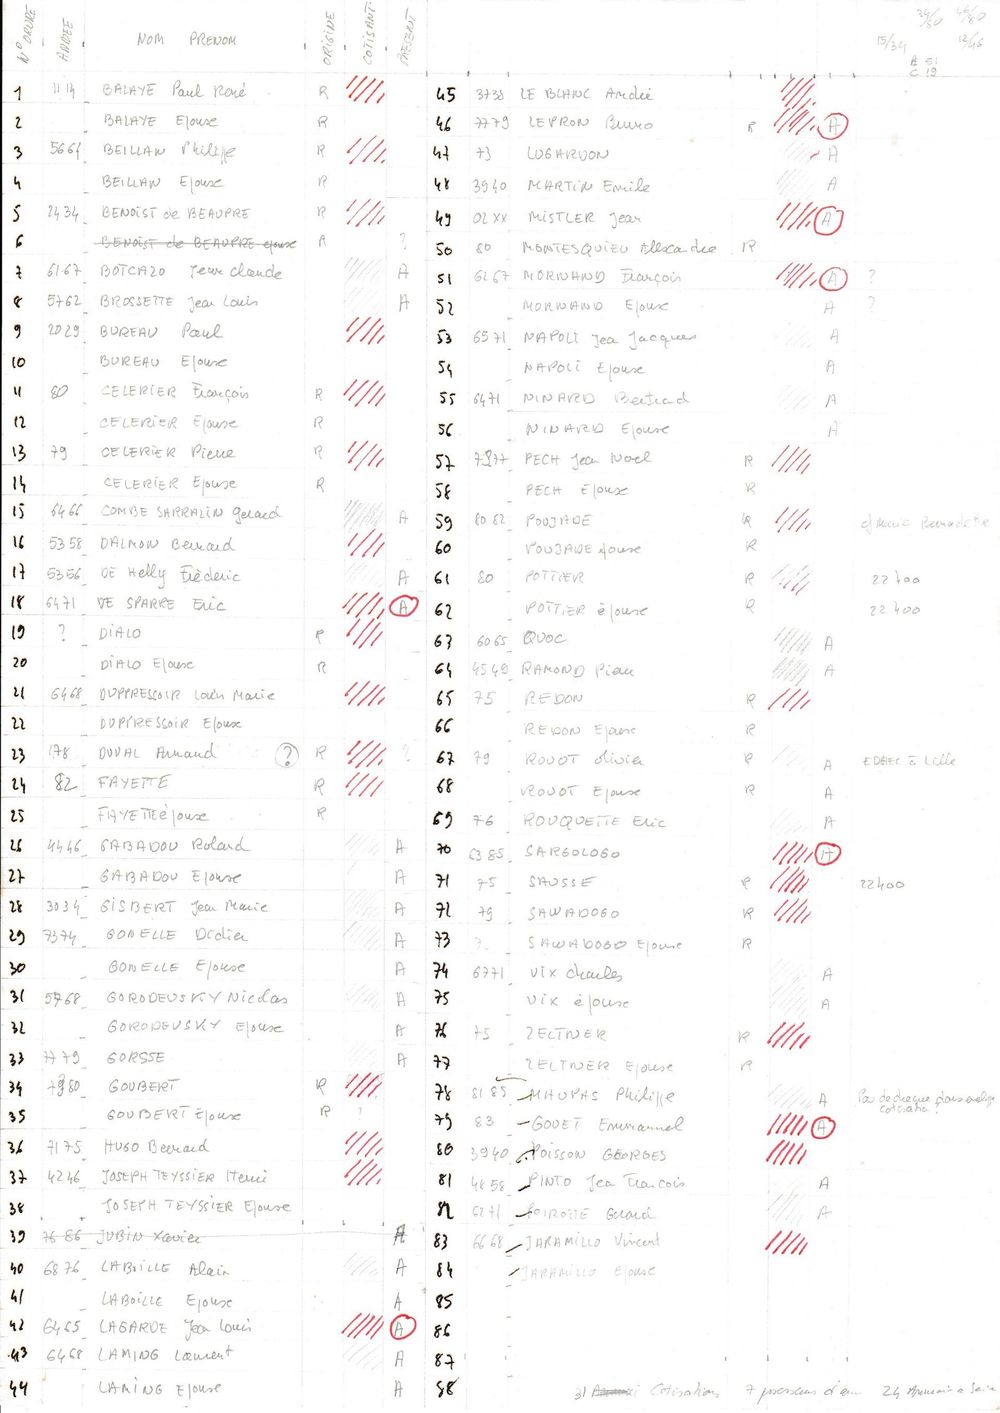 N° ORDRE ANNEE NOM PRENOM ORIGINE COTISANT PRESENT
1 11 14 BALAYE Paul René R
2 BALAYE Epouse R
3 56 61 BEILLAN Philippe R
4 BEILLAN Epouse R
5 24 34 BENOIST de BEAUPRE R
6 BENOIST de BEAUPRE epouse R ?
7 61 67 BOTCAZO Jean claude A
8 57 62 BROSSETTE Jean Louis A
9 20 29 BUREAU Paul
10 BUREAU Epouse
11 80 CELERIER François R
12 CELERIER Epouse R
13 79 CELERIER Pierre R
14 CELERIER Epouse R
15 64 66 COMBE SARRAZIN Gerard A
16 53 58 DALMON Bernard
17 53 56 DE Helly Frèderic A
18 64 71 DE SPARRE Eric A
19 ? DIALO R
20 DIALO Epouse R
21 64 68 DUPPRESSOIR Louis Marie
22 DUPPRESSOIR Epouse
23 78 DUVAL Arnaud ? R ?
24 82 FAYETTE R
25 FAYETTE épouse R
26 44 46 GABADOU Roland A
27 GABADOU Epouse A
28 30 34 GISBERT Jean Marie A
29 73 74 GONELLE Didier A
30 GONELLE Epouse A
31 57 68 GORODEVSKY Nicolas A
32 GORODEVSKY Epouse A
33 77 79 GORSSE A
34 80 GOUBERT R
35 GOUBERT Epouse R ?
36 71 75 HUGO Bernard
37 42 46 JOSEPH TEYSSIER Henri
38 JOSEPH TEYSSIER Epouse
39 76 86 JUBIN Xavier A
40 68 76 LABOILLE Alain A
41 LABOILLE Epouse A
42 64 65 LAGARDE Jean Louis A
43 64 68 LAMING Laurent A
44 LAMING Epouse A
34/80 46/80
15/34 12/46
A 51
C 19
45 37 38 LE BLANC André
46 77 79 LEPRON Bruno R A
47 73 LUGARDON A
48 39 40 MARTIN Emile A
49 02 XX MISTLER Jean A
50 80 MONTESQUIEU Alexandre R
51 62 67 MORNAND François A ?
52 MORNAND Epouse A ?
53 65 71 NAPOLI Jean Jacques A
54 NAPOLI Epouse A
55 64 71 NINARD Bertrand A
56 NINARD Epouse A
57 77 PECH Jean Noel R
58 PECH Epouse R
59 80 82 POUJADE R
60 POUJADE épouse R
61 80 POTTIER R 22400
62 POTTIER épouse R 22400
63 60 65 QUOC A
64 45 49 RAMOND Pierre A
65 75 REDON R
66 REDON Epouse R
67 79 ROUOT Olivier R A EDHEC à Lille
68 ROUOT Epouse R A
69 76 ROUQUETTE Eric A
70 63 85 SARGOLOGO A
71 75 SAUSSE R 22400
72 79 SAWADOGO R
73 ? SAWADOGO Epouse R
74 67 71 VIX charles A
75 VIX épouse A
76 75 ZELTNER R
77 ZELTNER Epouse R
78 81 85 MAUPAS Philippe A Pas de cheque
79 83 GOUET Emmanuel A
80 39 40 POISSON GEORGES
81 48 58 PINTO Jean François A
82 62 71 POIROTTE Gerard A
83 66 68 JARAMILLO Vincent
84 JARAMILLO Epouse
85
86
87
88 31 Cotisations 7 24